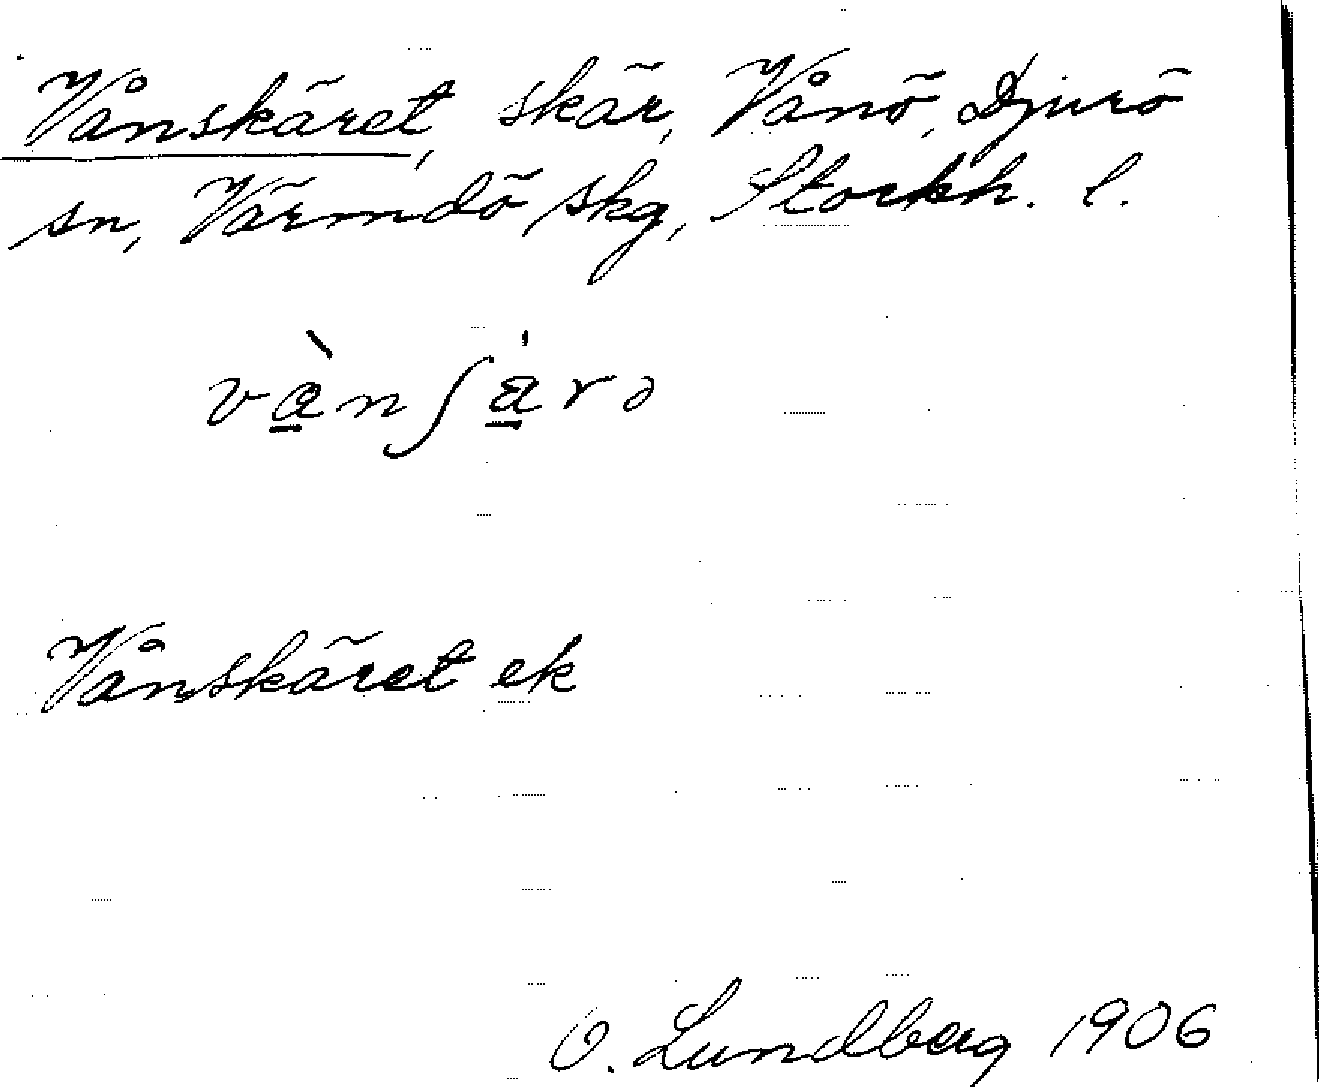 Vånskäret, skär, Vånö, Djurö
sn, Värmdö skg, Stockh. l.
vàn∫ärə
Vånskäret ek
O. Lundberg 1906